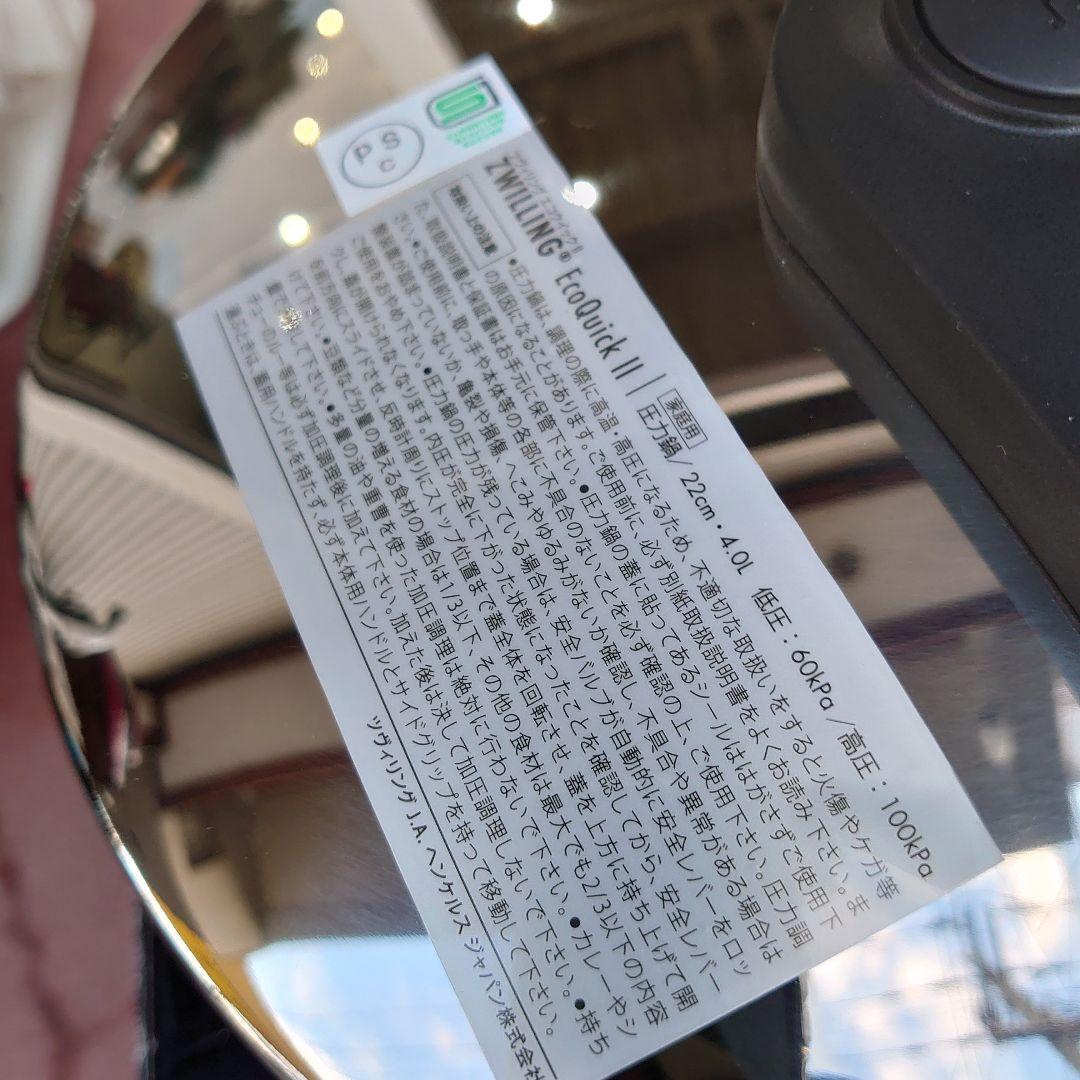 PSC
ツヴィリング エコクイック II
ZWILLING® EcoQuick II 家庭用 圧力鍋 / 22cm・4.0L 低圧：60kPa / 高圧：100kPa
取扱い上の注意 ●圧力鍋は、調理の際に高温・高圧になるため、不適切な取扱いをすると火傷やケガ等
の原因になることがあります。ご使用前に、必ず別紙取扱説明書をよくお読み下さい。ま
た、取扱説明書と保証書はお手元に保管下さい。●圧力鍋の蓋に貼ってあるシールははがさずご使用下
さい。●ご使用前に、取っ手や本体等の各部に不具合のないことを必ず確認の上、ご使用下さい。圧力調
整装置が詰まっていないか、亀裂や損傷、へこみやゆるみがないか確認し、不具合や異常がある場合は
ご使用をおやめ下さい。●圧力鍋の圧力が残っている場合は、安全バルブが自動的に安全レバーをロッ
クし、蓋が開けられなくなります。内圧が完全に下がった状態になったことを確認してから、安全レバー
を前方向にスライドさせ、反時計周りにストップ位置まで蓋全体を回転させ、蓋を上方に持ち上げて開
けて下さい。●豆類など分量の増える食材の場合は1/3以下、その他の食材は最大でも2/3以下の内容
量にして下さい。●多量の油や重曹を使った加圧調理は絶対に行わないで下さい。●カレーやシ
チューのルー等は必ず加圧調理後に加えて下さい。加えた後は決して加圧調理しないで下さい。●持ち
運ぶときは、蓋用ハンドルを持たず、必ず本体用ハンドルとサイドグリップを持って移動して下さい。
ツヴィリング J.A. ヘンケルス ジャパン株式会社